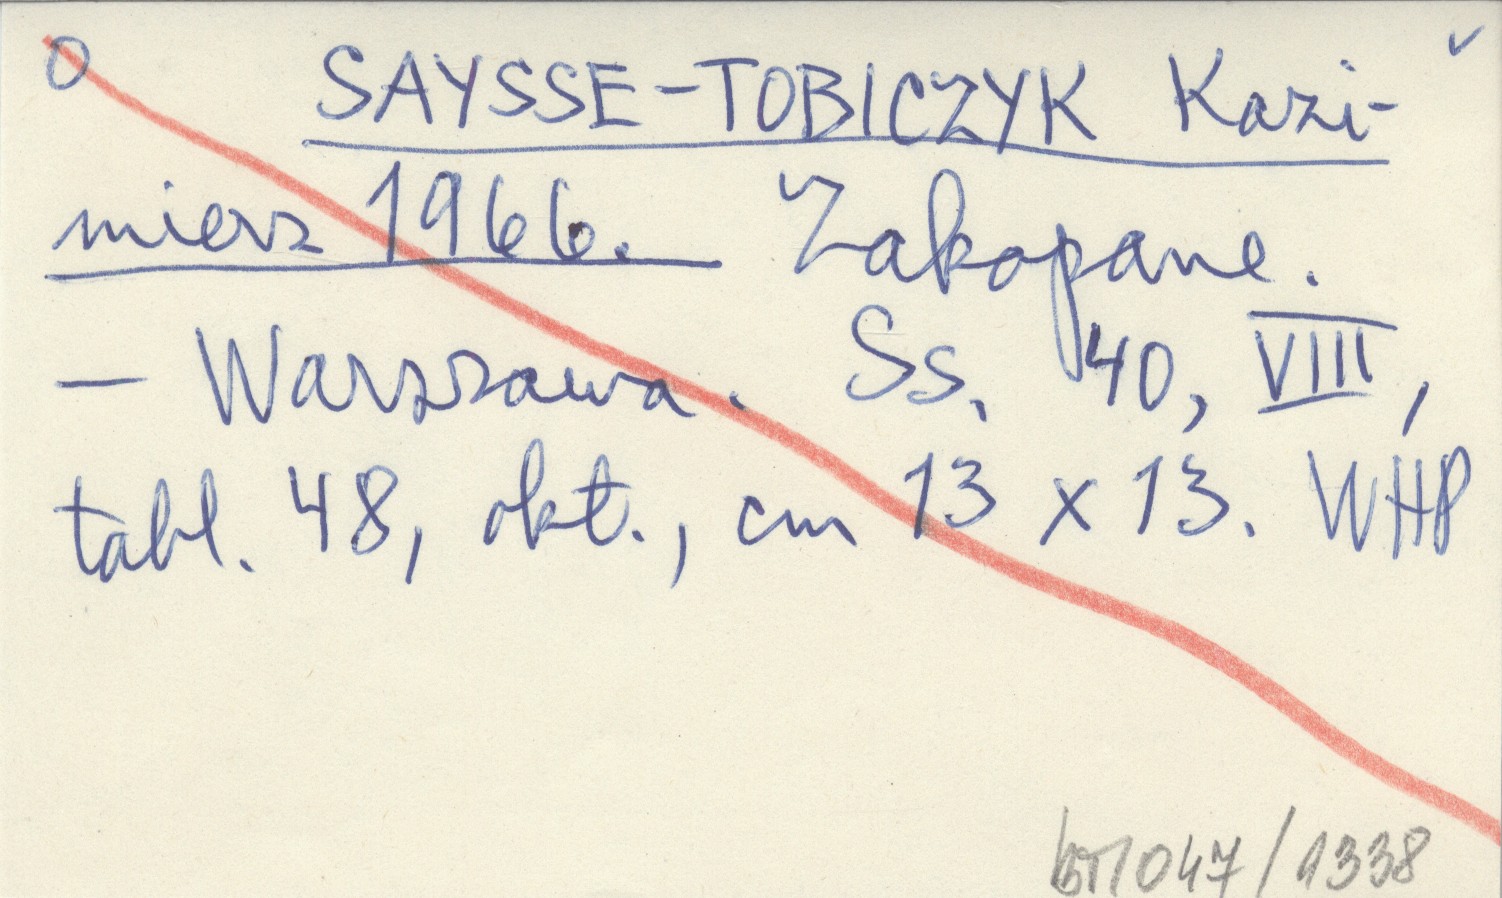 O SAYSSE-TOBICZYK Kazi-
mierz 1966. Zakopane.
— Warszawa. Ss. 40, VIII,
tabl. 48, okł., cm 13 x 13. WHP
047/1338